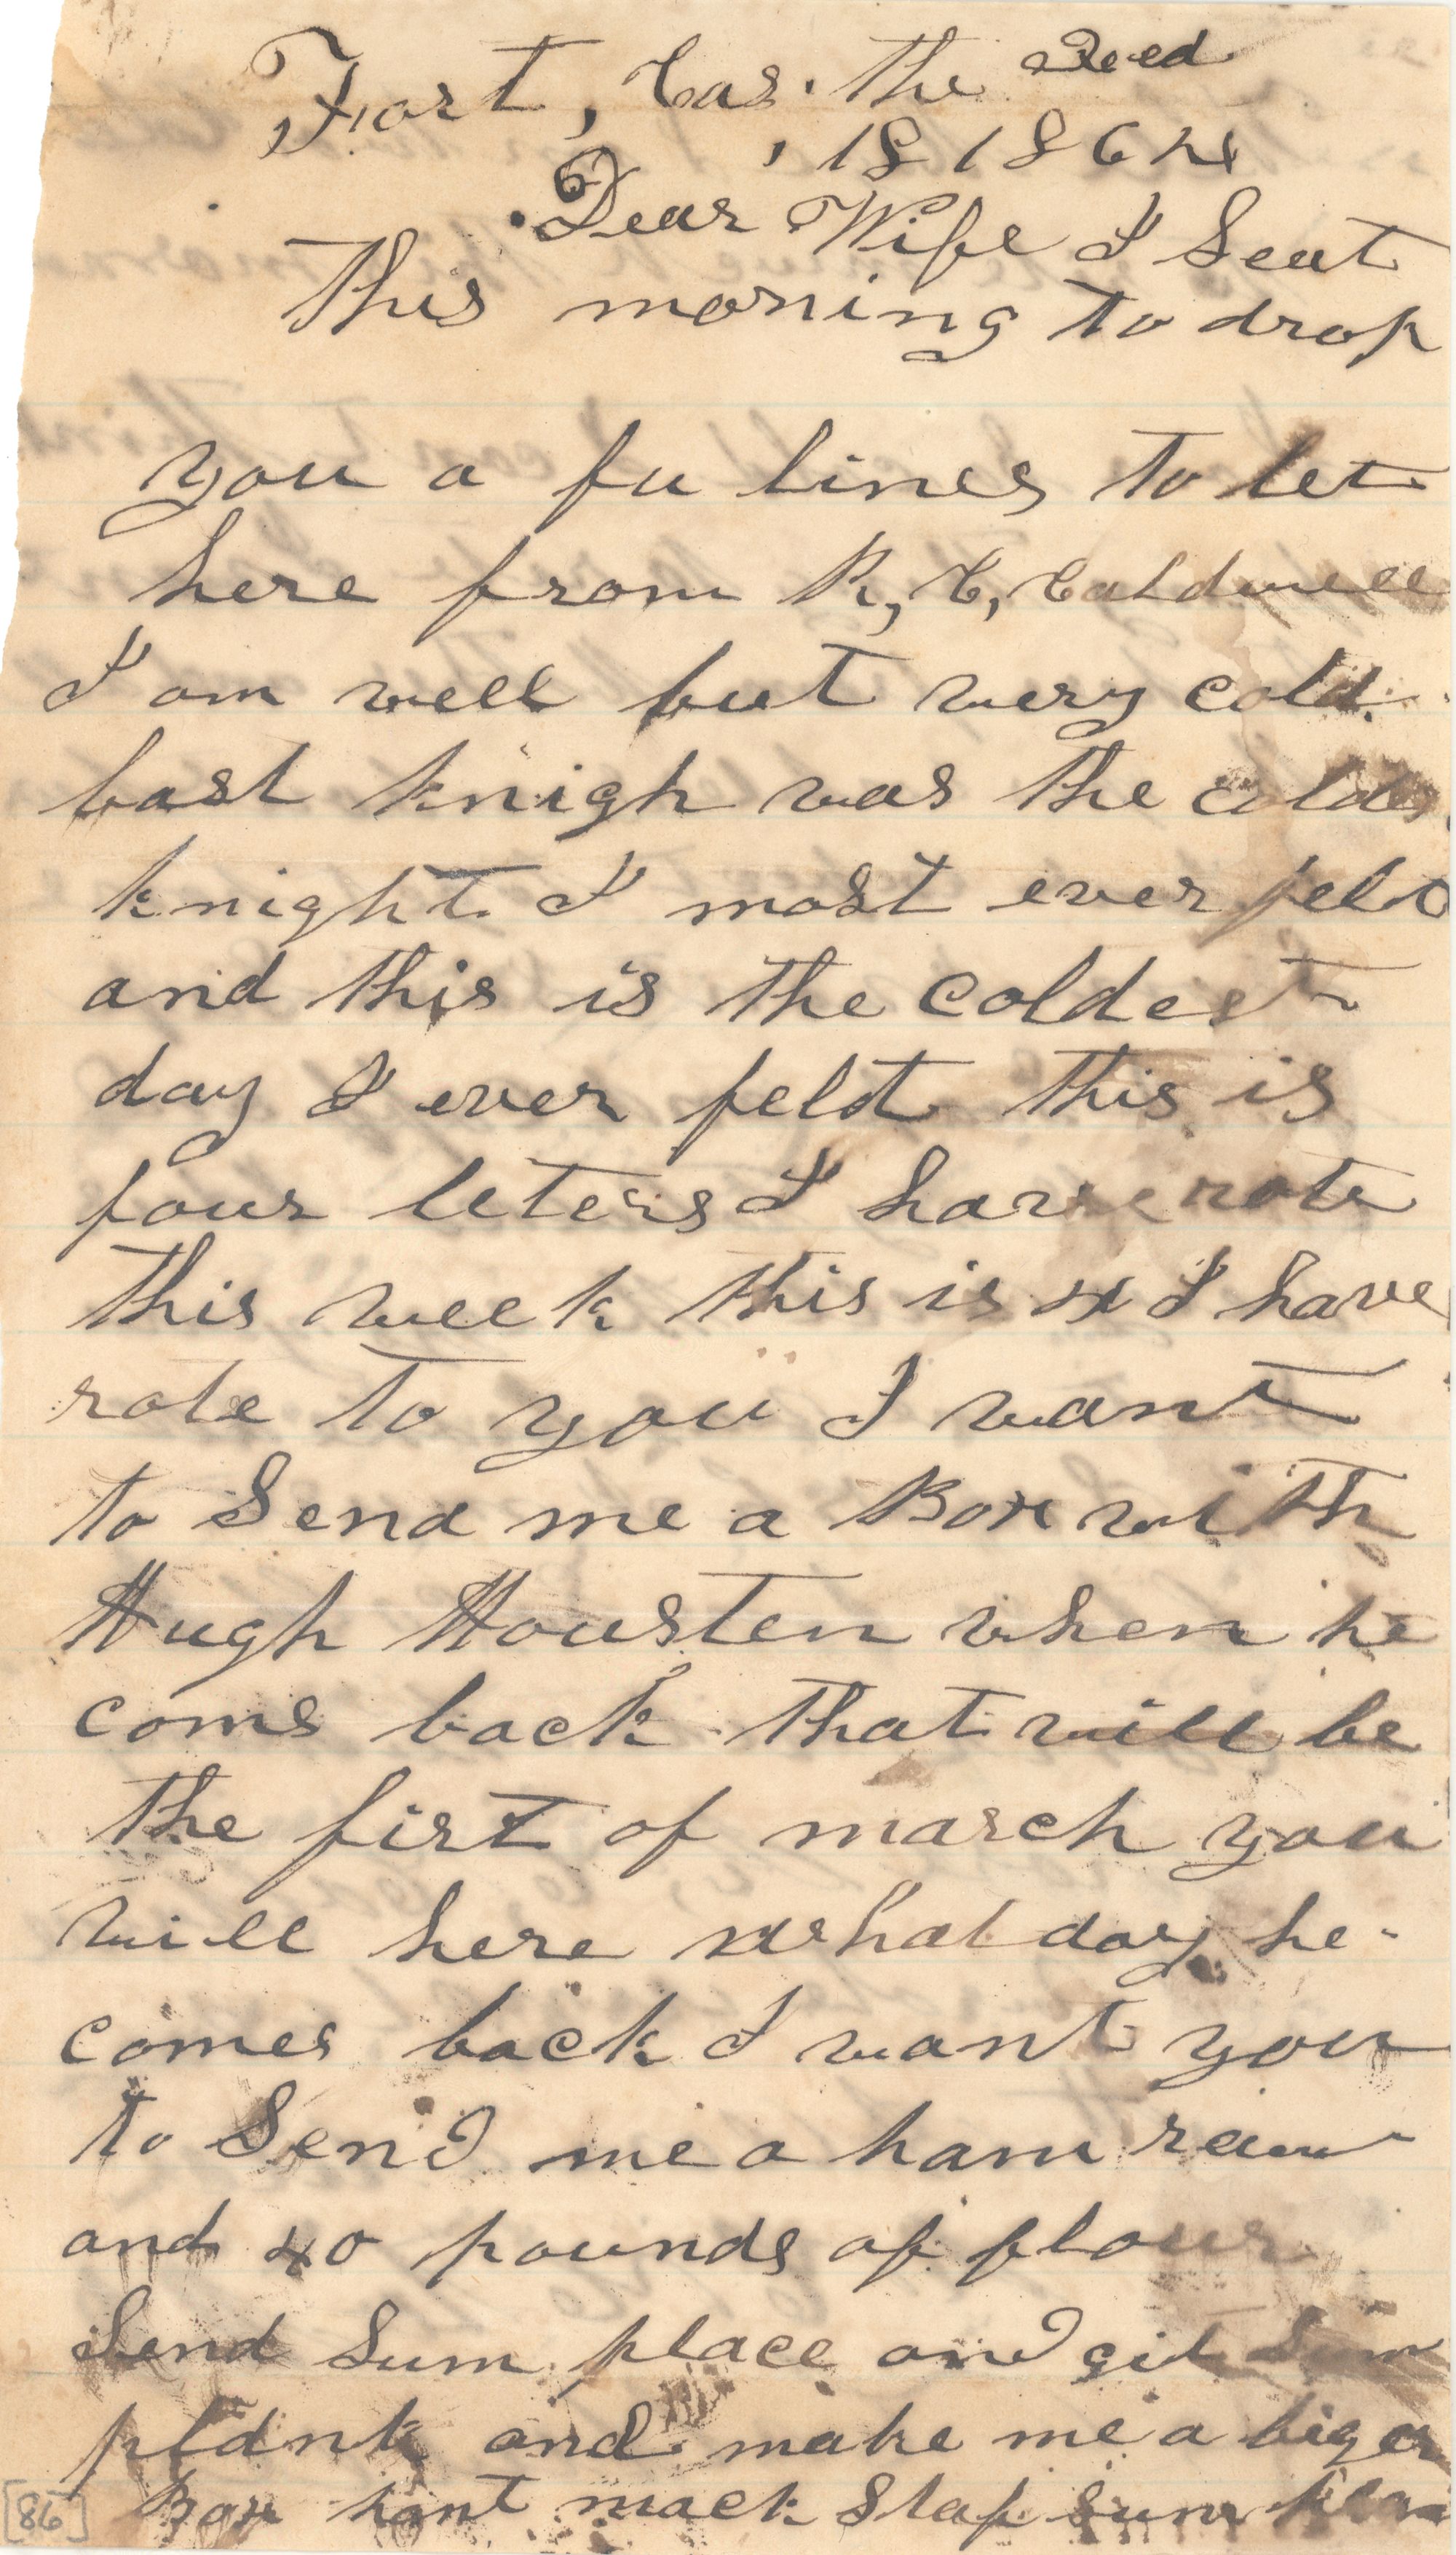 Fort, Cas. the
, 18 1864
Dear Wife I Seat
this moring to drop
you a fu lines to let
here from R, C, Caldwell
I am well but very cold
last knigh was the cold
knight I most ever felt
and this is the coldest
day I ever feldt this is
four leters I have rote
this week this is 4 I have
rote to you I want
to Send me a Box with
Hugh Housten when he
coms back that will be
the first of march you
will here what day he
comes back I want you
to Send me a ham raw
and 40 pounds of flour
Send Sum place and git Sum
pldnk and make me a biger
Box mack Slap Sum
[86]